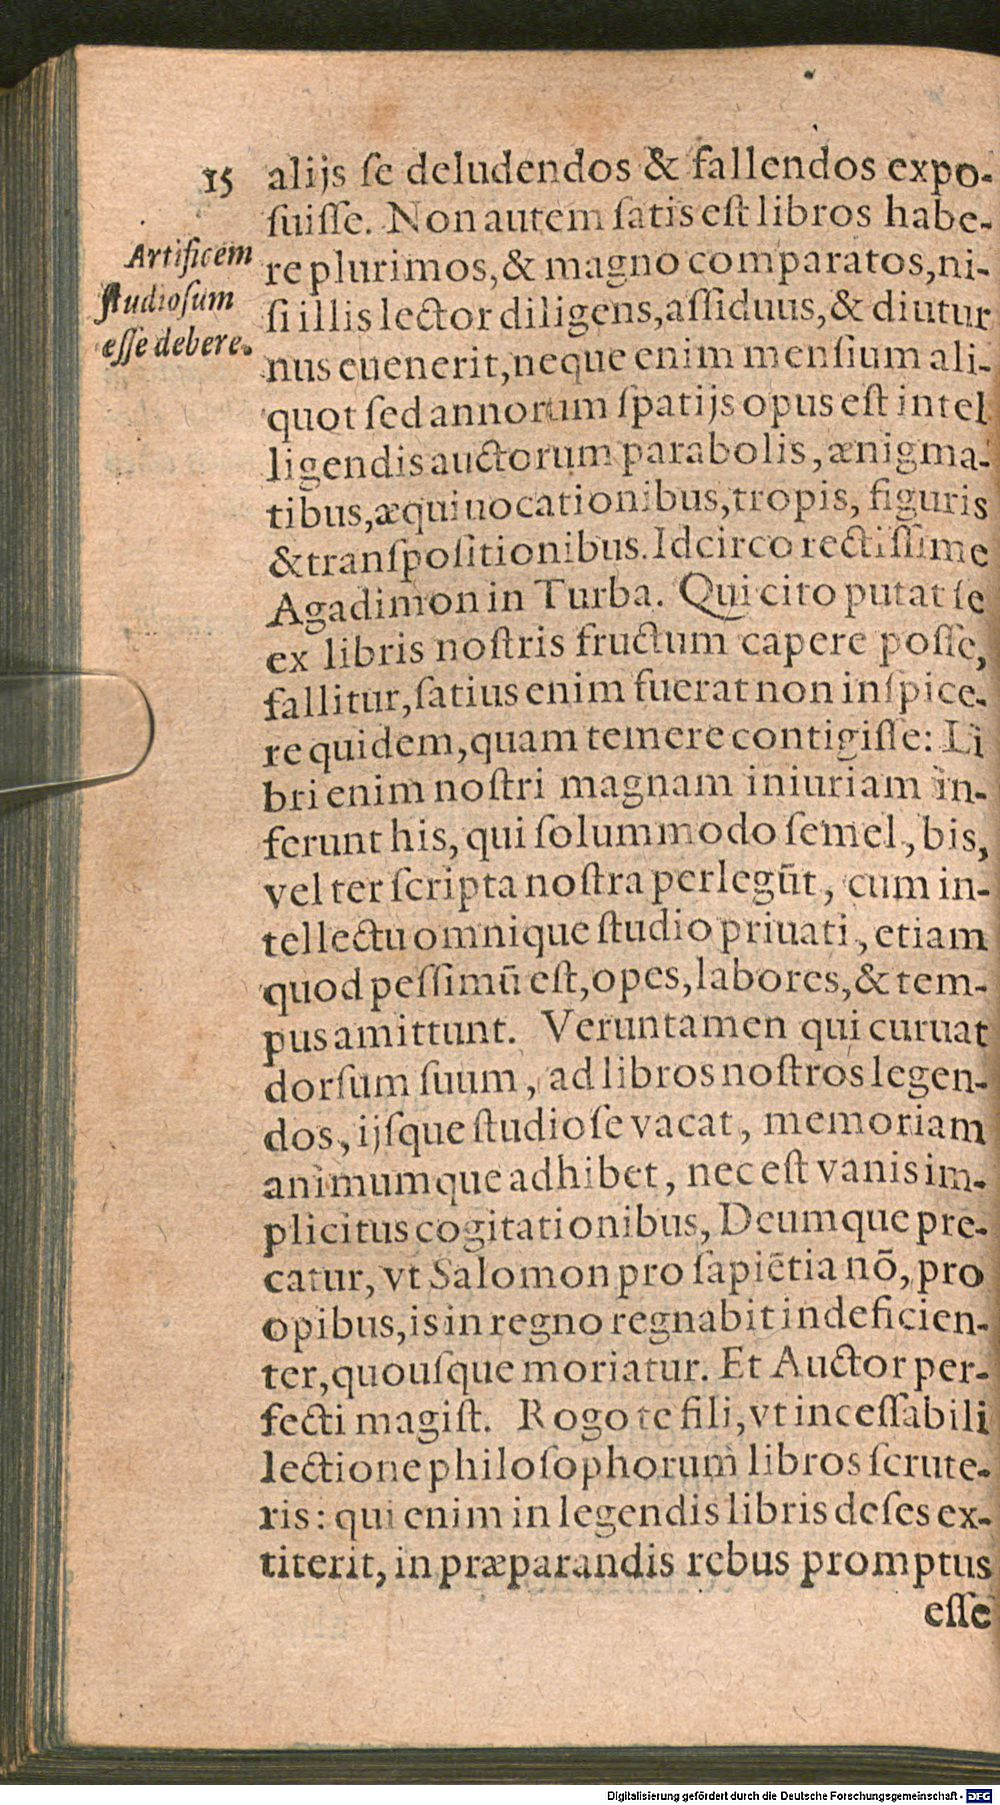 15 alijs ſe deludendos & fallendos expo-
ſuiſſe. Non autem ſatis eſt libros habe-
Artificem
re plurimos, & magno comparatos, ni-
ſtudioſum
ſi illis lector diligens, aſſiduus, & diutur
eſſe debere.
nus euenerit, neque enim menſium ali-
quot ſed annorum ſpatijs opus eſt intel
ligendis auctorum parabolis, ænigma-
tibus, æquiuocationibus, tropis, figuris
& tranſpoſitionibus. Idcirco rectiſſime
Agadimon in Turba. Qui cito putat ſe
ex libris noſtris fructum capere poſſe,
fallitur, ſatius enim fuerat non inſpice-
re quidem, quam temere contigiſſe: Li
bri enim noſtri magnam iniuriam in-
ferunt his, qui ſolummodo ſemel, bis,
vel ter ſcripta noſtra perlegũt, cum in-
tellectu omnique ſtudio priuati, etiam
quod peſſimũ eſt, opes, labores, & tem-
pus amittunt. Veruntamen qui curuat
dorſum ſuum, ad libros noſtros legen-
dos, ijſque ſtudioſe vacat, memoriam
animumque adhibet, nec eſt vanis im-
plicitus cogitationibus, Deumque pre-
catur, vt Salomon pro ſapiẽtia nõ, pro
opibus, is in regno regnabit indeficien-
ter, quouſque moriatur. Et Auctor per-
fecti magiſt. Rogo te fili, vt inceſſabili
lectione philoſophorum libros ſcrute-
ris: qui enim in legendis libris deſes ex-
titerit, in præparandis rebus promptus
eſſe
Digitalisierung gefördert durch die Deutsche Forschungsgemeinschaft - DFG